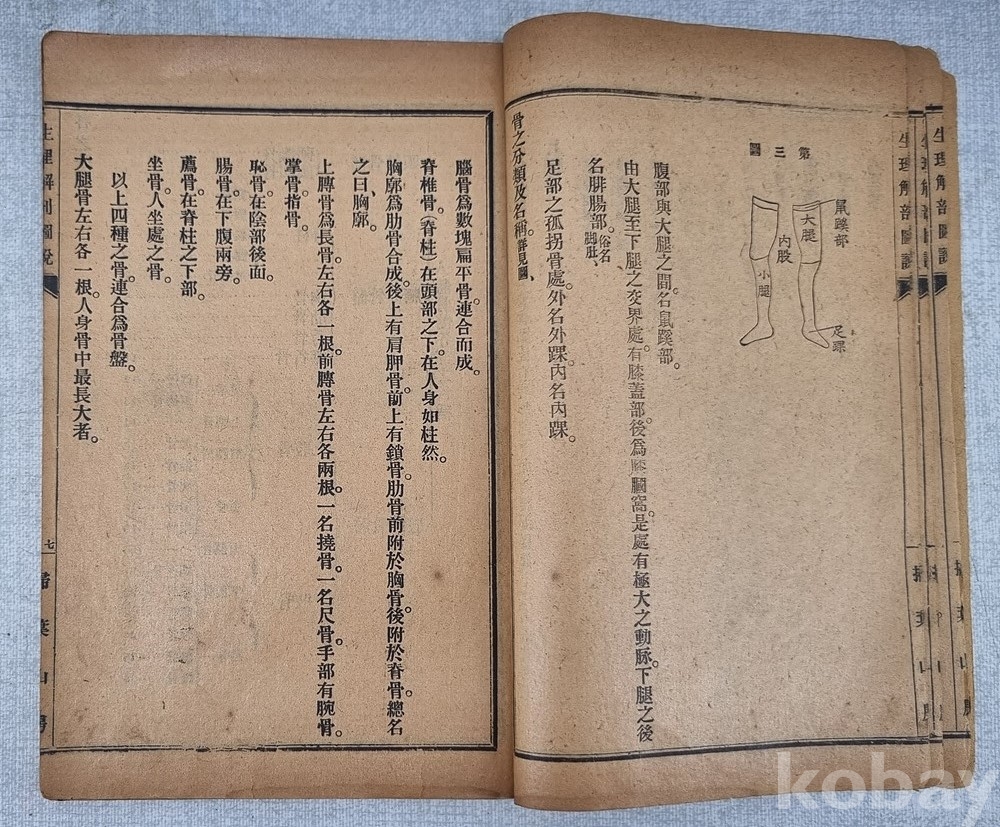 第三圖
鼠蹊部
大腿
內股
小腿
足踝
腹部與大腿之間名鼠蹊部。
由大腿至下腿之交界處。有膝蓋部。後爲膝膕窩。是處有極大之動脈。下腿之後
名腓腸部。俗名脚肚、
足部之孤拐骨處。外名外踝。內名內踝。
骨之分類及名稱。詳見圖、
腦骨爲數塊扁平骨連合而成。
脊椎骨。(脊柱)在頭部之下。在人身如柱然。
胸廓爲肋骨合成。後上有肩胛骨。前上有鎖骨。肋骨前附於胸骨。後附於脊骨。總名
之曰、胸廓。
上膊骨爲長骨。左右各一根。前膊骨左右各兩根。一名撓骨。一名尺骨。手部有腕骨。
掌骨。指骨。
恥骨。在陰部後面。
腸骨。在下腹兩旁。
薦骨。在脊柱之下部。
坐骨。人坐處之骨。
以上四種之骨。連合爲骨盤。
大腿骨左右各一根。人身骨中最長大者。
生理解剖圖說
七
掃葉山房
生理解剖圖說
生理解剖圖說
生理解剖圖說
掃葉山房
kobay